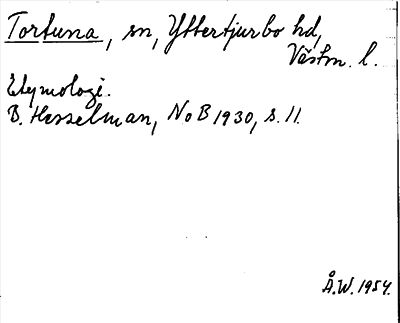 Tortuna, sn, Yttertjurbo hd,
Västm. l.
Etymologi.
B. Hesselman, NoB 1930, s. 11.
Å.W. 1954.